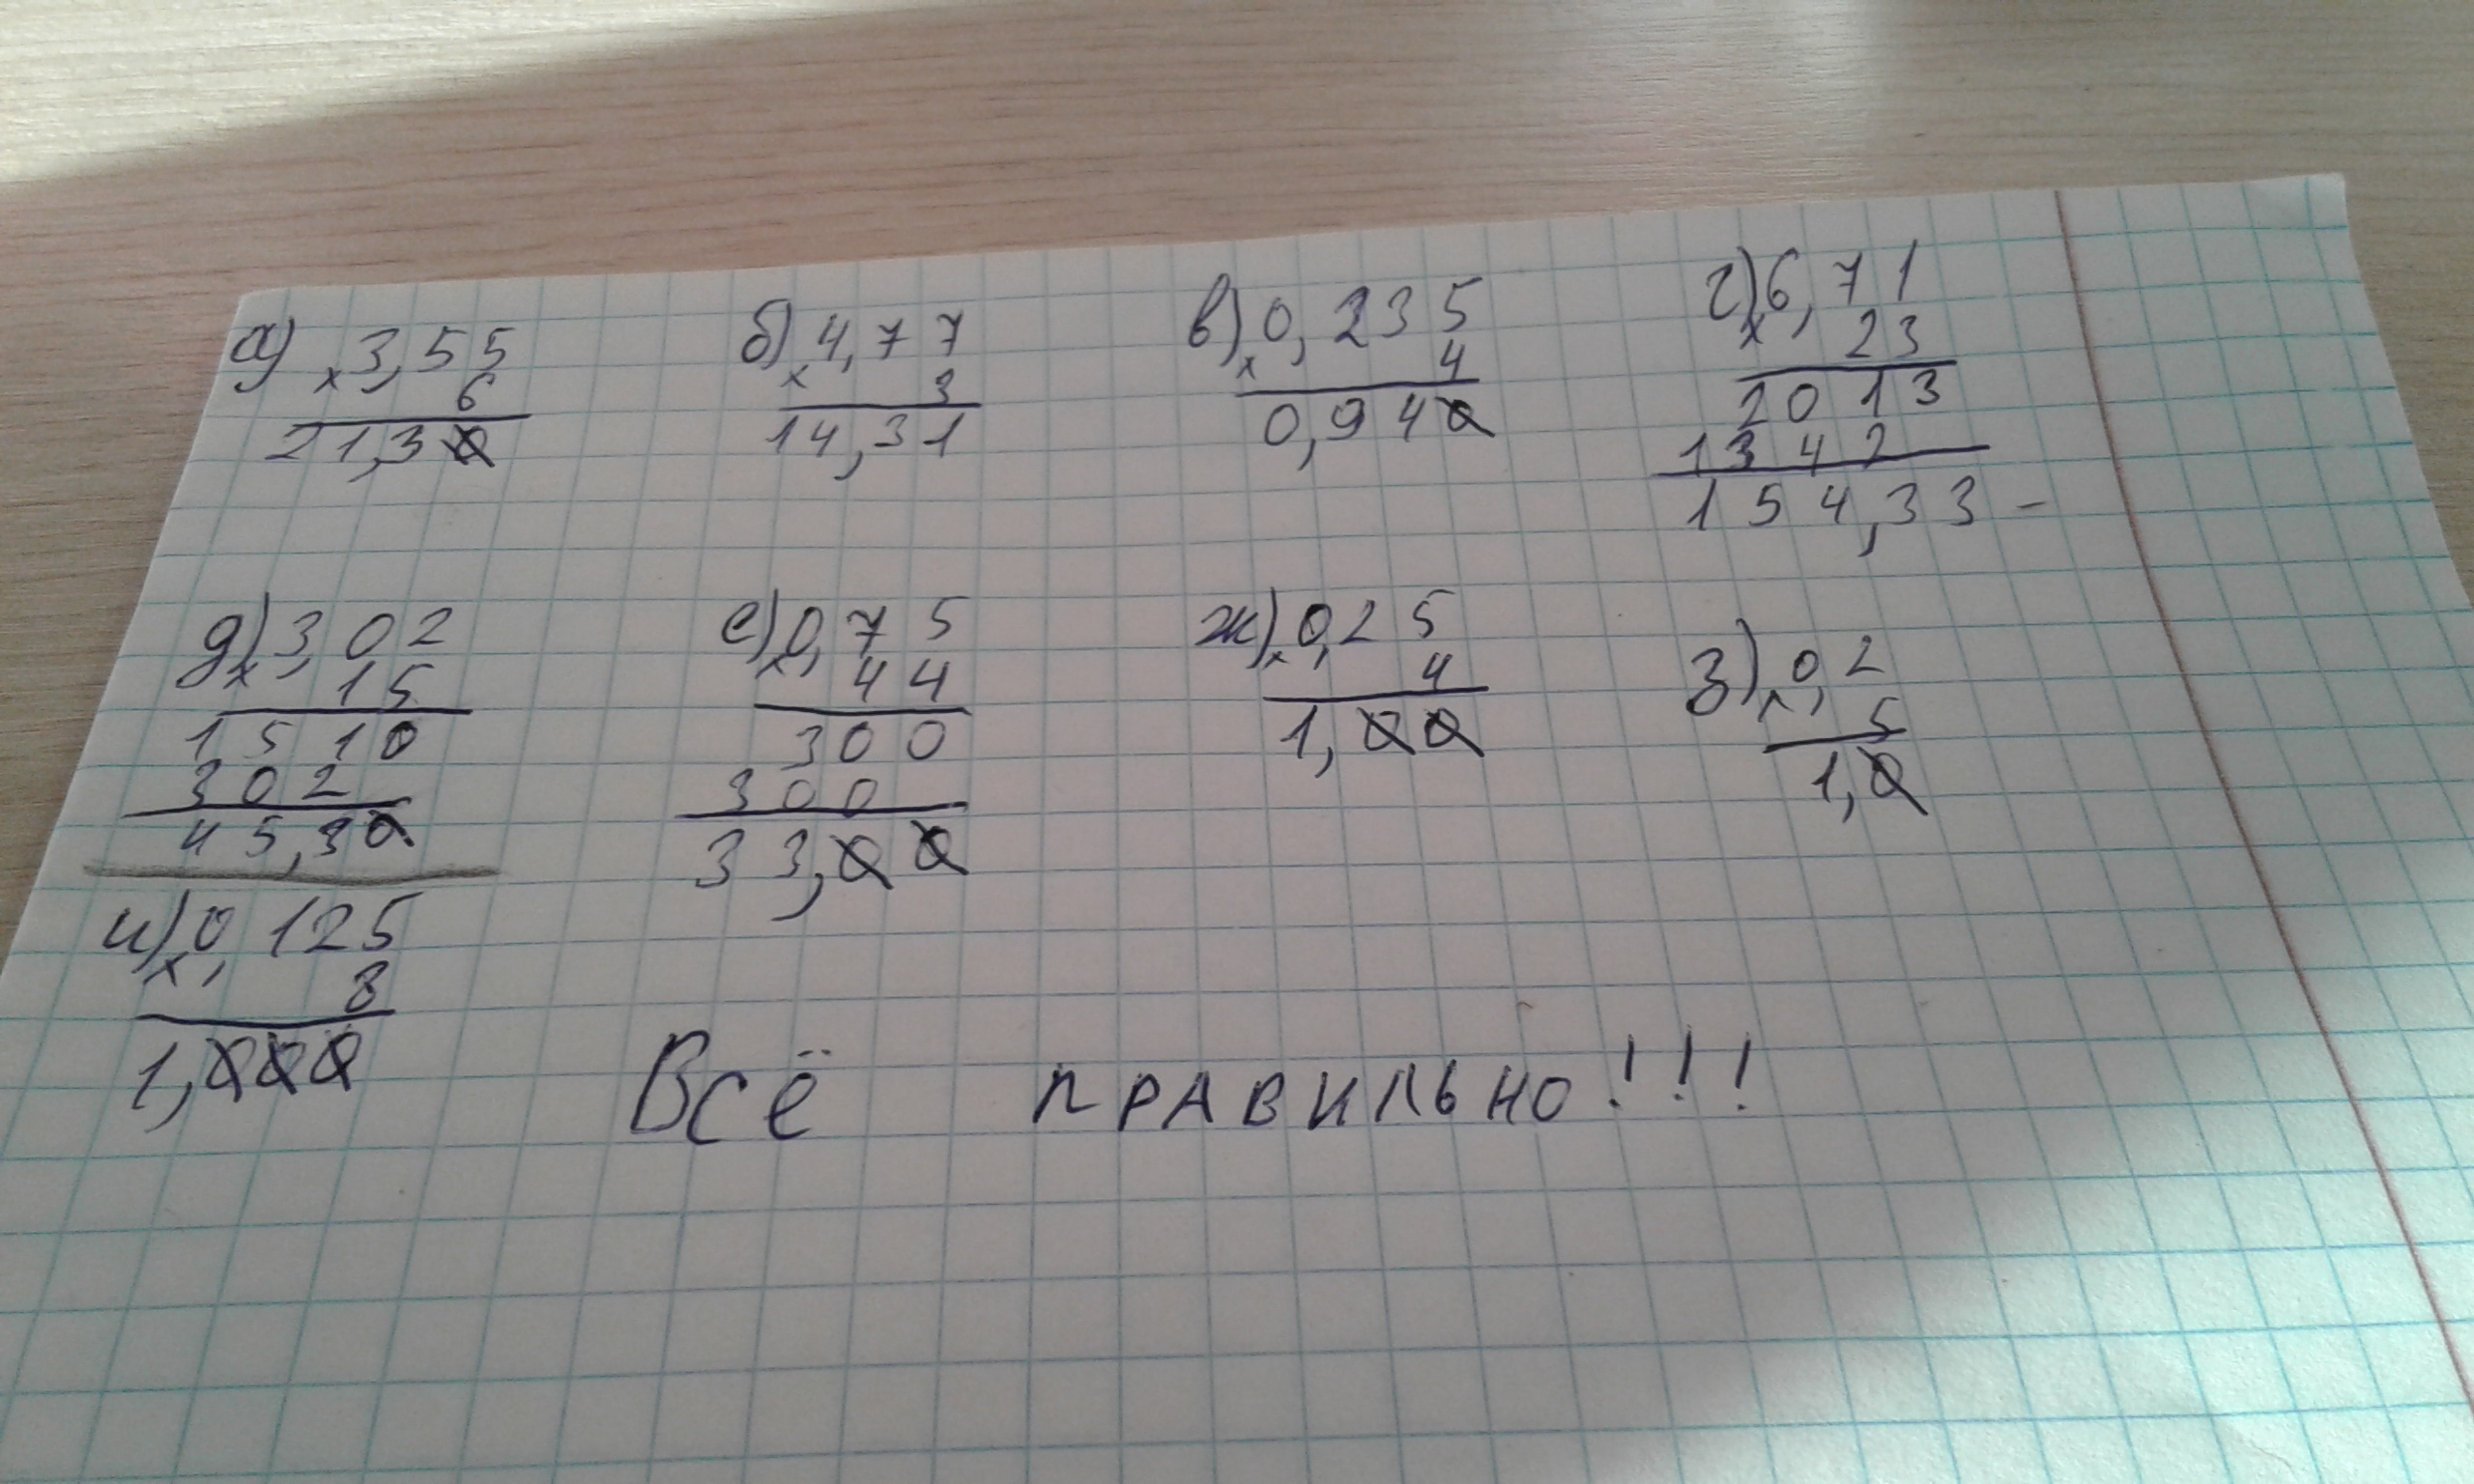 а) × 3,55   б) × 4,77   в) × 0,235   г) × 6,71
6   3   4   23
21,30   14,31   0,940   2013
1342
154,33 -
д) × 3,02   е) × 0,75   ж) × 0,25   з) × 0,2
15   44   4   5
1510   300   1,00   1,0
302   300
45,30   33,00
и) × 0,125
8
1,000
Всё правильно!!!